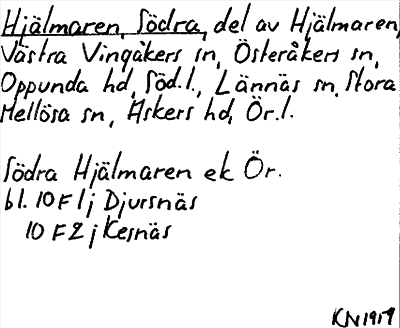 Hjälmaren, Södra, del av Hjälmaren,
Västra Vingåkers sn, Österåkers sn,
Oppunda hd, Söd.l., Lännäs sn, Stora
Mellösa sn, Askers hd, Ör.l.
Södra Hjälmaren ek Ör.
bl. 10 F 1 j Djursnäs
10 F 2 j Kesnäs